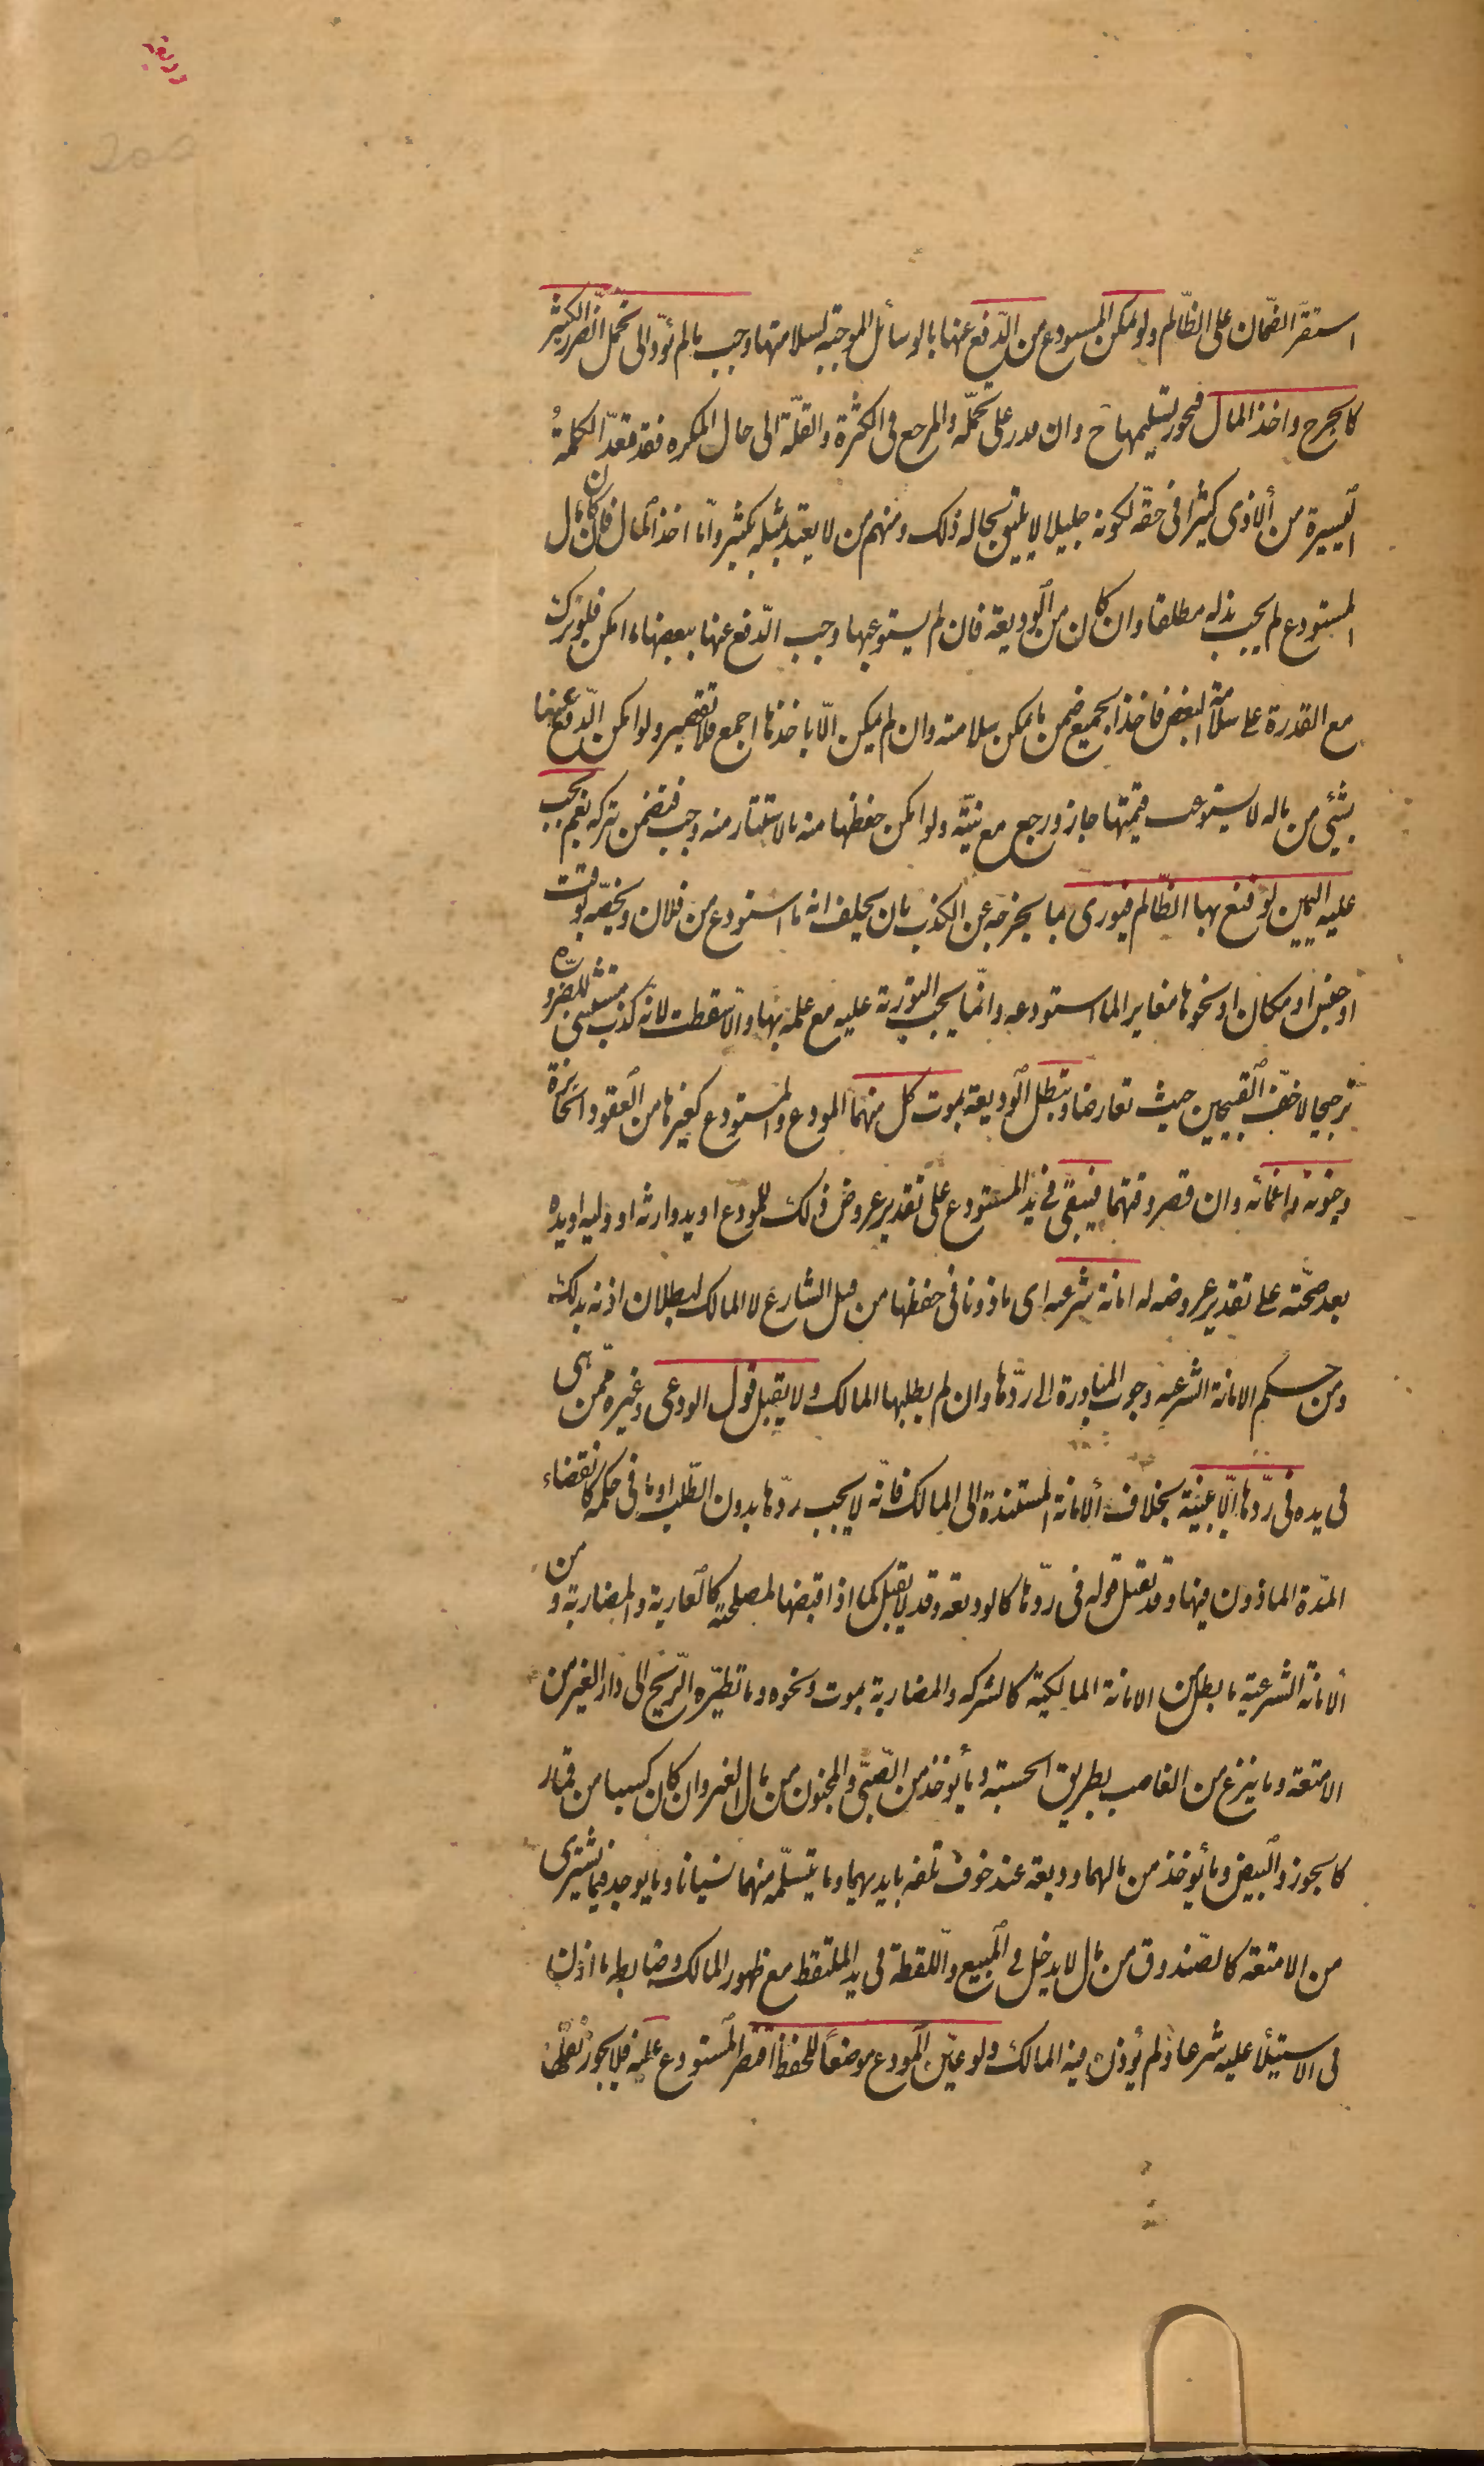 وديعة
استقرّ الضمان على الظّالم ولو تمكن المستودع من الدّفع عنها بالوسائل الموجبة لسلامتها وجب ما لم يؤدّ الى تحمّل الضّرر الكثير
كالجرح واخذ المال فيجوز تسليمها ح وان قدر على تحمّله والمرجع فى الكثرة والقلّة الى حال المكره فقد تعدّ الكلمةُ
اليسيرة من الأذى كثيرا فى حقّه لكونه جليلا لا يليق بحاله ذلك ومنهم من لا يعتدّ بمثله بكثير وأمّا اخذ المال فان كان مال
المستودع لم يجب بذله مطلقا وان كان من الوديعة فان لم يستوعبها وجب الدّفع عنها ببعضها ما امكن فلو ترك
مع القدرة على سلامة البعض فاخذ الجميع ضمن ما يمكن سلامته وان لم يمكن الّا باخذها اجمع فلا تقصير ولو امكن الدّفع عنها
بشئ من ماله لا يستوعب قيمتها جاز ورجع مع نيّته ولو امكن حفظها منه بالاستتار منه وجب فيضمن بتركه نعم يجب
عليه اليمين لو قنع بها الظّالم فيورّى بما يخرجه عن الكذب بان يحلف انه ما استودع من فلان ويخصّه بوقت
او جنس او مكان او نحوها مغاير لما استودعه وانّما يجب التورية عليه مع علمه بها والّا سقطت لانّه كذب مستثنى للضّرورة
ترجيحا لاخفّ القبيحين حيث تعارضا وتبطل الوديعة بموت كل منهما المودع والمستودع كغيرها من العقود الجائزة
وجنونه واغمائه وان قصر وقتهما فيبقى فى يد المستودع على تقدير عروض ذلك للمودع او يد وارثه او وليه او يده
بعد صحّته على تقدير عروضه له امانة شرعيه اى ماذونا فى حفظها من قبل الشارع لا المالك لبطلان اذنه بذلك
ومن حكم الامانة الشرعيه وجوب المبادرة الى ردّها وان لم يطلبها المالك ولا يقبل قول الودعى وغيره ممّن هى
فى يده فى ردّها الّا ببيّنة بخلاف الأمانة المستندة الى المالك فانّه لا يجب ردّها بدون الطّلب او ما فى حكمه كانقضاء
المدّة الماذون فيها وقد يقبل قوله فى ردّها كالوديعه وقد لا يقبل كما اذا قبضها لمصلحته كالعارية والمضاربة ومن
الامانة الشرعية ما بطل من الامانة المالكية كالشركه والمضاربة بموت ونحوه وما تطيّره الرّيح الى دار الغير من
الامتعة وما ينزع من الغاصب بطريق الحسبة وما يؤخذ من الصّبىّ والمجنون من مال الغير وان كان كسبا من قمار
كالجوز والبيض وما يؤخذ من مالهما وديعة عند خوف تلفه بايديهما وما يتسلّمه منهما نسيانا وما يوجد فيما يشترى
من الامتعة كالصّندوق من مال لا يدخل فى المبيع واللّقطة فى يد الملتقط مع ظهور المالك وضابطه ما اذن
فى الاستيلأ عليه شرعا ولم يؤذن فيه المالك ولو عيّن المودع موضعاً للحفظ اقتصر المستودع عليه فلا يجوز نقلها